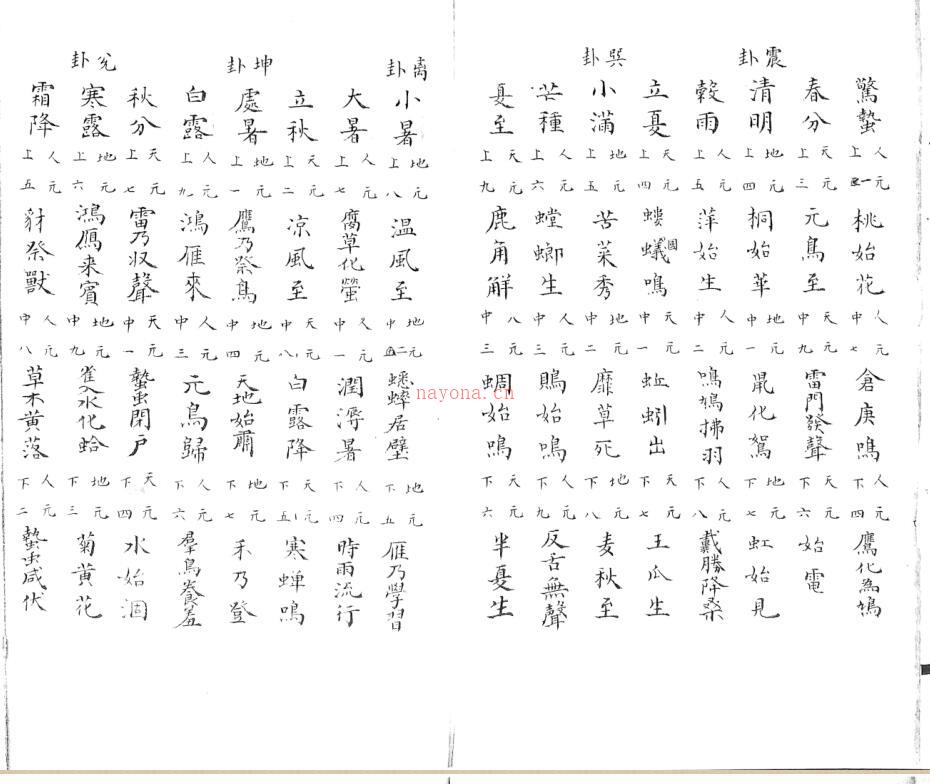 震卦
巽卦
驚蟄 人元上一 桃始花 人元中七 倉庚鳴 人元下四 鷹化為鳩
春分 天元上三 元鳥至 天元中九 雷門發聲 天元下六 始電
清明 地元上四 桐始華 地元中一 鼠化鴽 地元下七 虹始見
穀雨 人元上五 萍始生 人元中二 鳴鳩拂羽 人元下八 戴勝降桑
立夏 天元上四 螻蟻國鳴 天元中一 蚯蚓出 天元下七 王瓜生
小滿 地元上五 苦菜秀 人元中二 靡草死 地元下八 麦秋至
芒種 人元上六 螳螂生 人元中三 鵙始鳴 人元下九 反舌無聲
夏至 天元上九 鹿角解 八元中三 蜩始鳴 天元下六 半夏生
離卦
坤卦
兌卦
小暑 地元上八 温風至 地元中二 蟋蟀居壁 地元下五 雁乃學習
大暑 人元上七 腐草化螢 人元中一 潤溽暑 人元下四 時雨流行
立秋 天元上二 凉風至 天元中八 白露降 天元下五 寒蟬鳴
處暑 地元上一 鷹乃祭鳥 地元中四 天地始肅 地元下七 禾乃登
白露 人元上九 鴻雁來 人元中三 元鳥歸 人元下六 羣鳥養羞
秋分 天元上七 雷乃収聲 天元中一 蟄虫閉户 天元下四 水始涸
寒露 地元上六 鴻鴈来賓 地元中九 雀入水化蛤 地元下三 菊黄花
霜降 人元上五 豺祭獸 人元中八 草木黄落 人元下二 蟄虫咸伏
nayona.cn